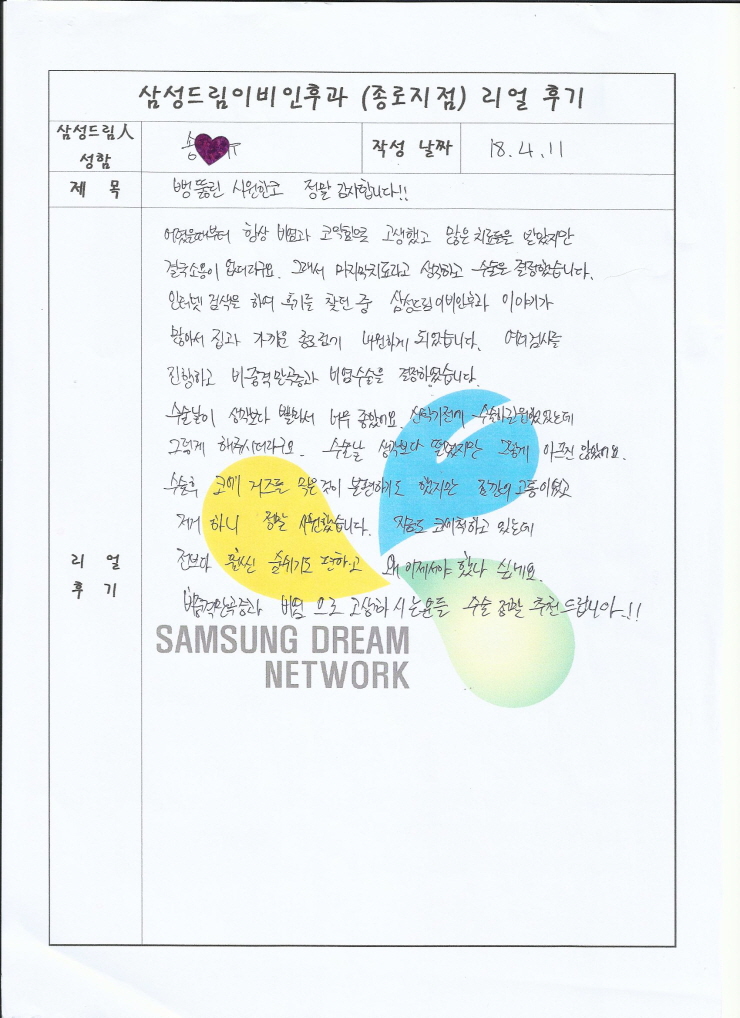 삼성드림이비인후과 (종로지점) 리얼 후기
삼성드림人 성함
송
작성 날짜
18.4.11
제 목
뻥 뚫린 시원한코 정말 감사합니다!!
리 얼 후 기
어렸을때부터 항상 비염과 코막힘으로 고생했고 많은 치료들을 받았지만
결국소용이 없더라구요. 그래서 마지막치료라고 생각하고 수술을 결정했습니다.
인터넷 검색을 하여 후기를 찾던 중 삼성드림이비인후과 이야기가
많아서 집과 가까운 종로점에 내원하게 되었습니다. 여러검사를
진행하고 비중격만곡증과 비염수술을 결정하였습니다.
수술날이 생각보다 빨라서 너무 좋았어요. 수술하길원했었는데
그렇게 해주시더라구요. 수술날 생각보다 떨렸지만 그렇게 아프진 않았어요.
수술후 코에 거즈를 막은것이 불편하기도 했지만 잠깐의 고통이였고
제거 하니 정말 시원했습니다. 지금도 코세척하고 있는데
전보다 훨씬 숨쉬기도 편하고 왜 이제서야 했나 싶네요.
비중격만곡증과 비염 으로 고생하 시는분들 수술 정말 추천 드립니다..!!
SAMSUNG DREAM
NETWORK